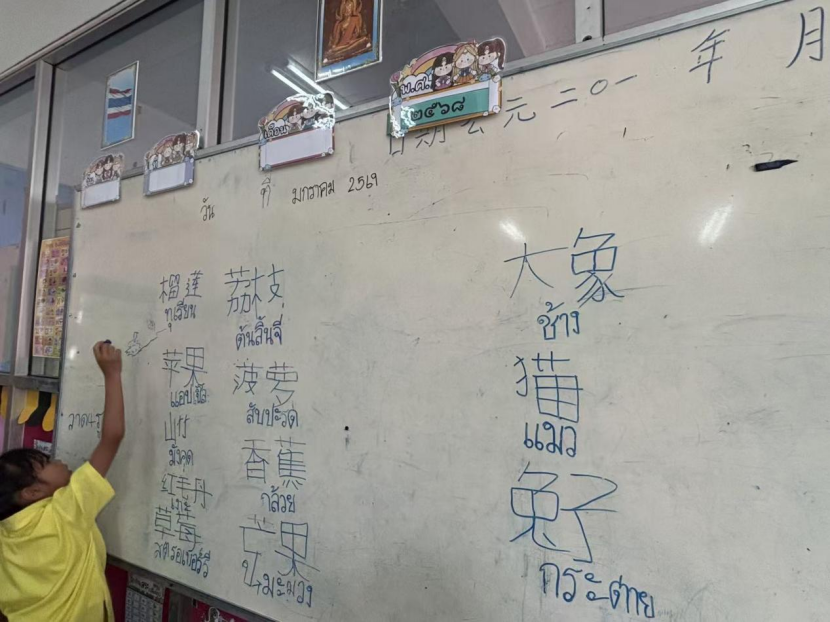 พ.ศ.
๒๕๖๘
เดือน
ที่
วัน
日期 公元二〇一 年 月
วัน ที่ มกราคม 2569
榴莲 荔枝 大象
ทุเรียน ต้นลิ้นจี่ ช้าง
苹果 菠萝 猫
แอปเปิล สับปะรด แมว
山竹 香蕉 兔子
มังคุด กล้วย กระต่าย
红毛丹 芒果
เงาะ มะม่วง
草莓
สตรอเบอร์รี่
วาด